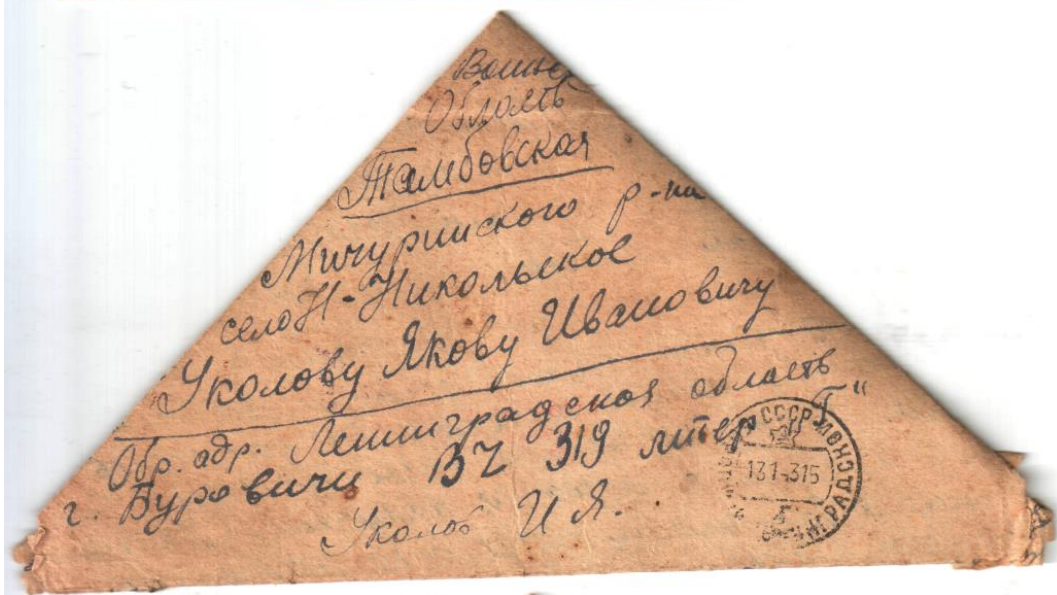 Область
Тамбовская
Мичуринского р-на
село Н-Никольское
Уколову Якову Ивановичу
Обр. адр. Ленинградская область
г. Буровичи ВZ 319 литер "Г"
Уколов И. Я.
СССР
131-315